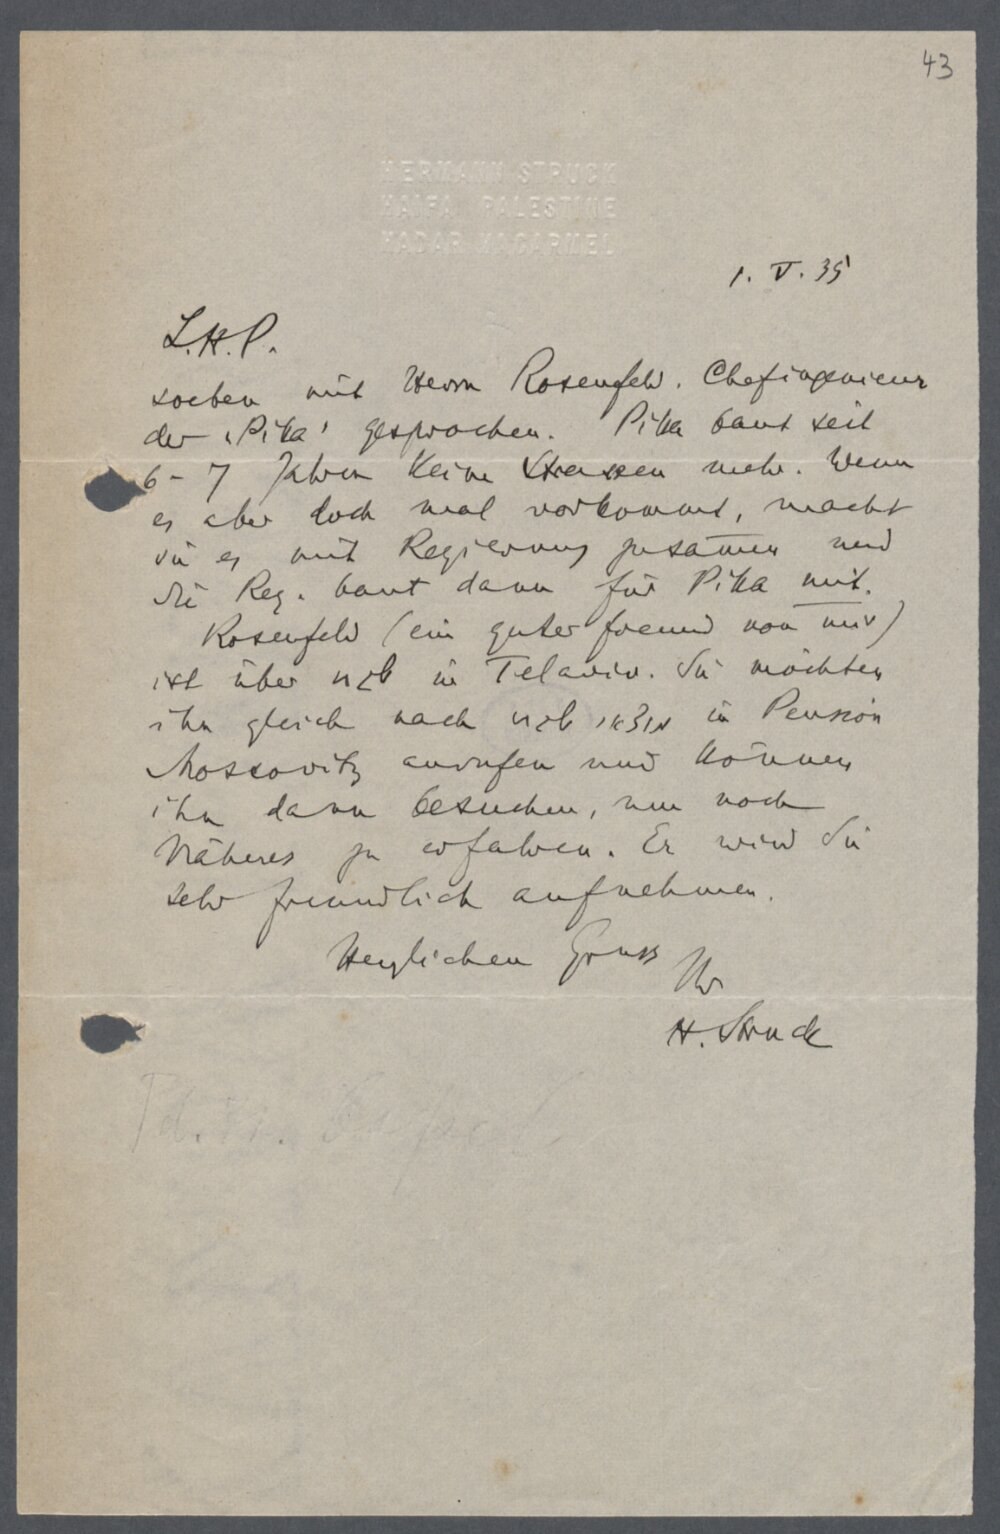 43
HERMANN STRUCK
HAIFA PALESTINE
HADAR HACARMEL
1. V. 35
L.H.P.
soeben mit Herrn Rosenfeld. Chefingenieur
der "Pika" gesprochen. Pika baut seit
6-7 Jahren keine Strassen mehr. Wenn
es aber doch mal vorkommt, macht
sie es mit Regierung zusam̅en und
die Reg. baut dann für Pika mit.
Rosenfeld (ein guter Freund von mir)
ist über שבת in Telaviv. Sie möchten
ihn gleich nach שבת in Pension
Moscovitz anrufen und können
ihn dann besuchen, um noch
Näheres zu erfahren. Er wird Sie
sehr freundlich aufnehmen.
Herzlichen Gruss
Ihr
H. Struck